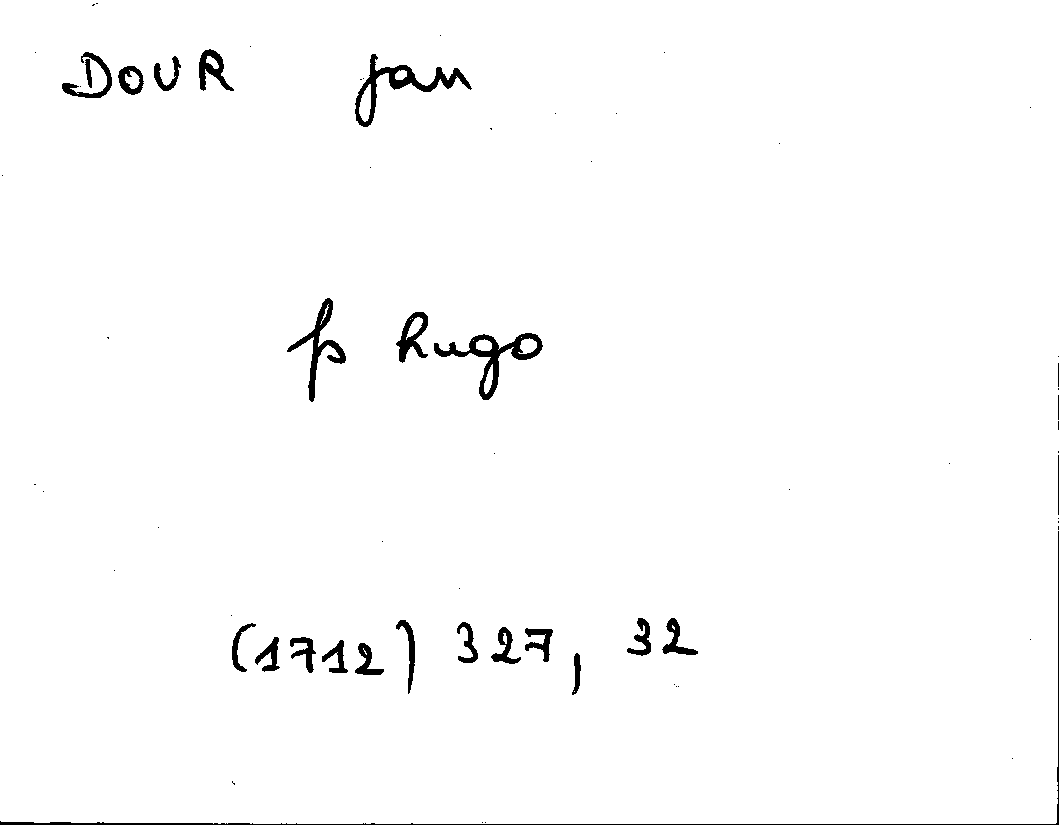 DOUR jan
p hugo
(1712) 327, 32